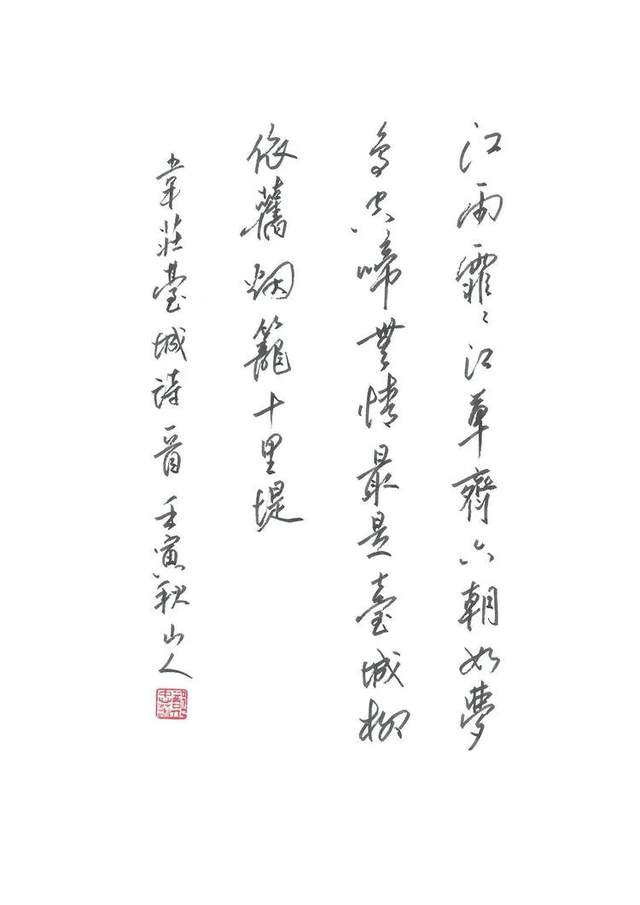 江雨霏〻江草齊六朝如夢
鳥空啼無情最是臺城柳
依舊烟籠十里堤
韋莊臺城詩一首壬寅秋山人